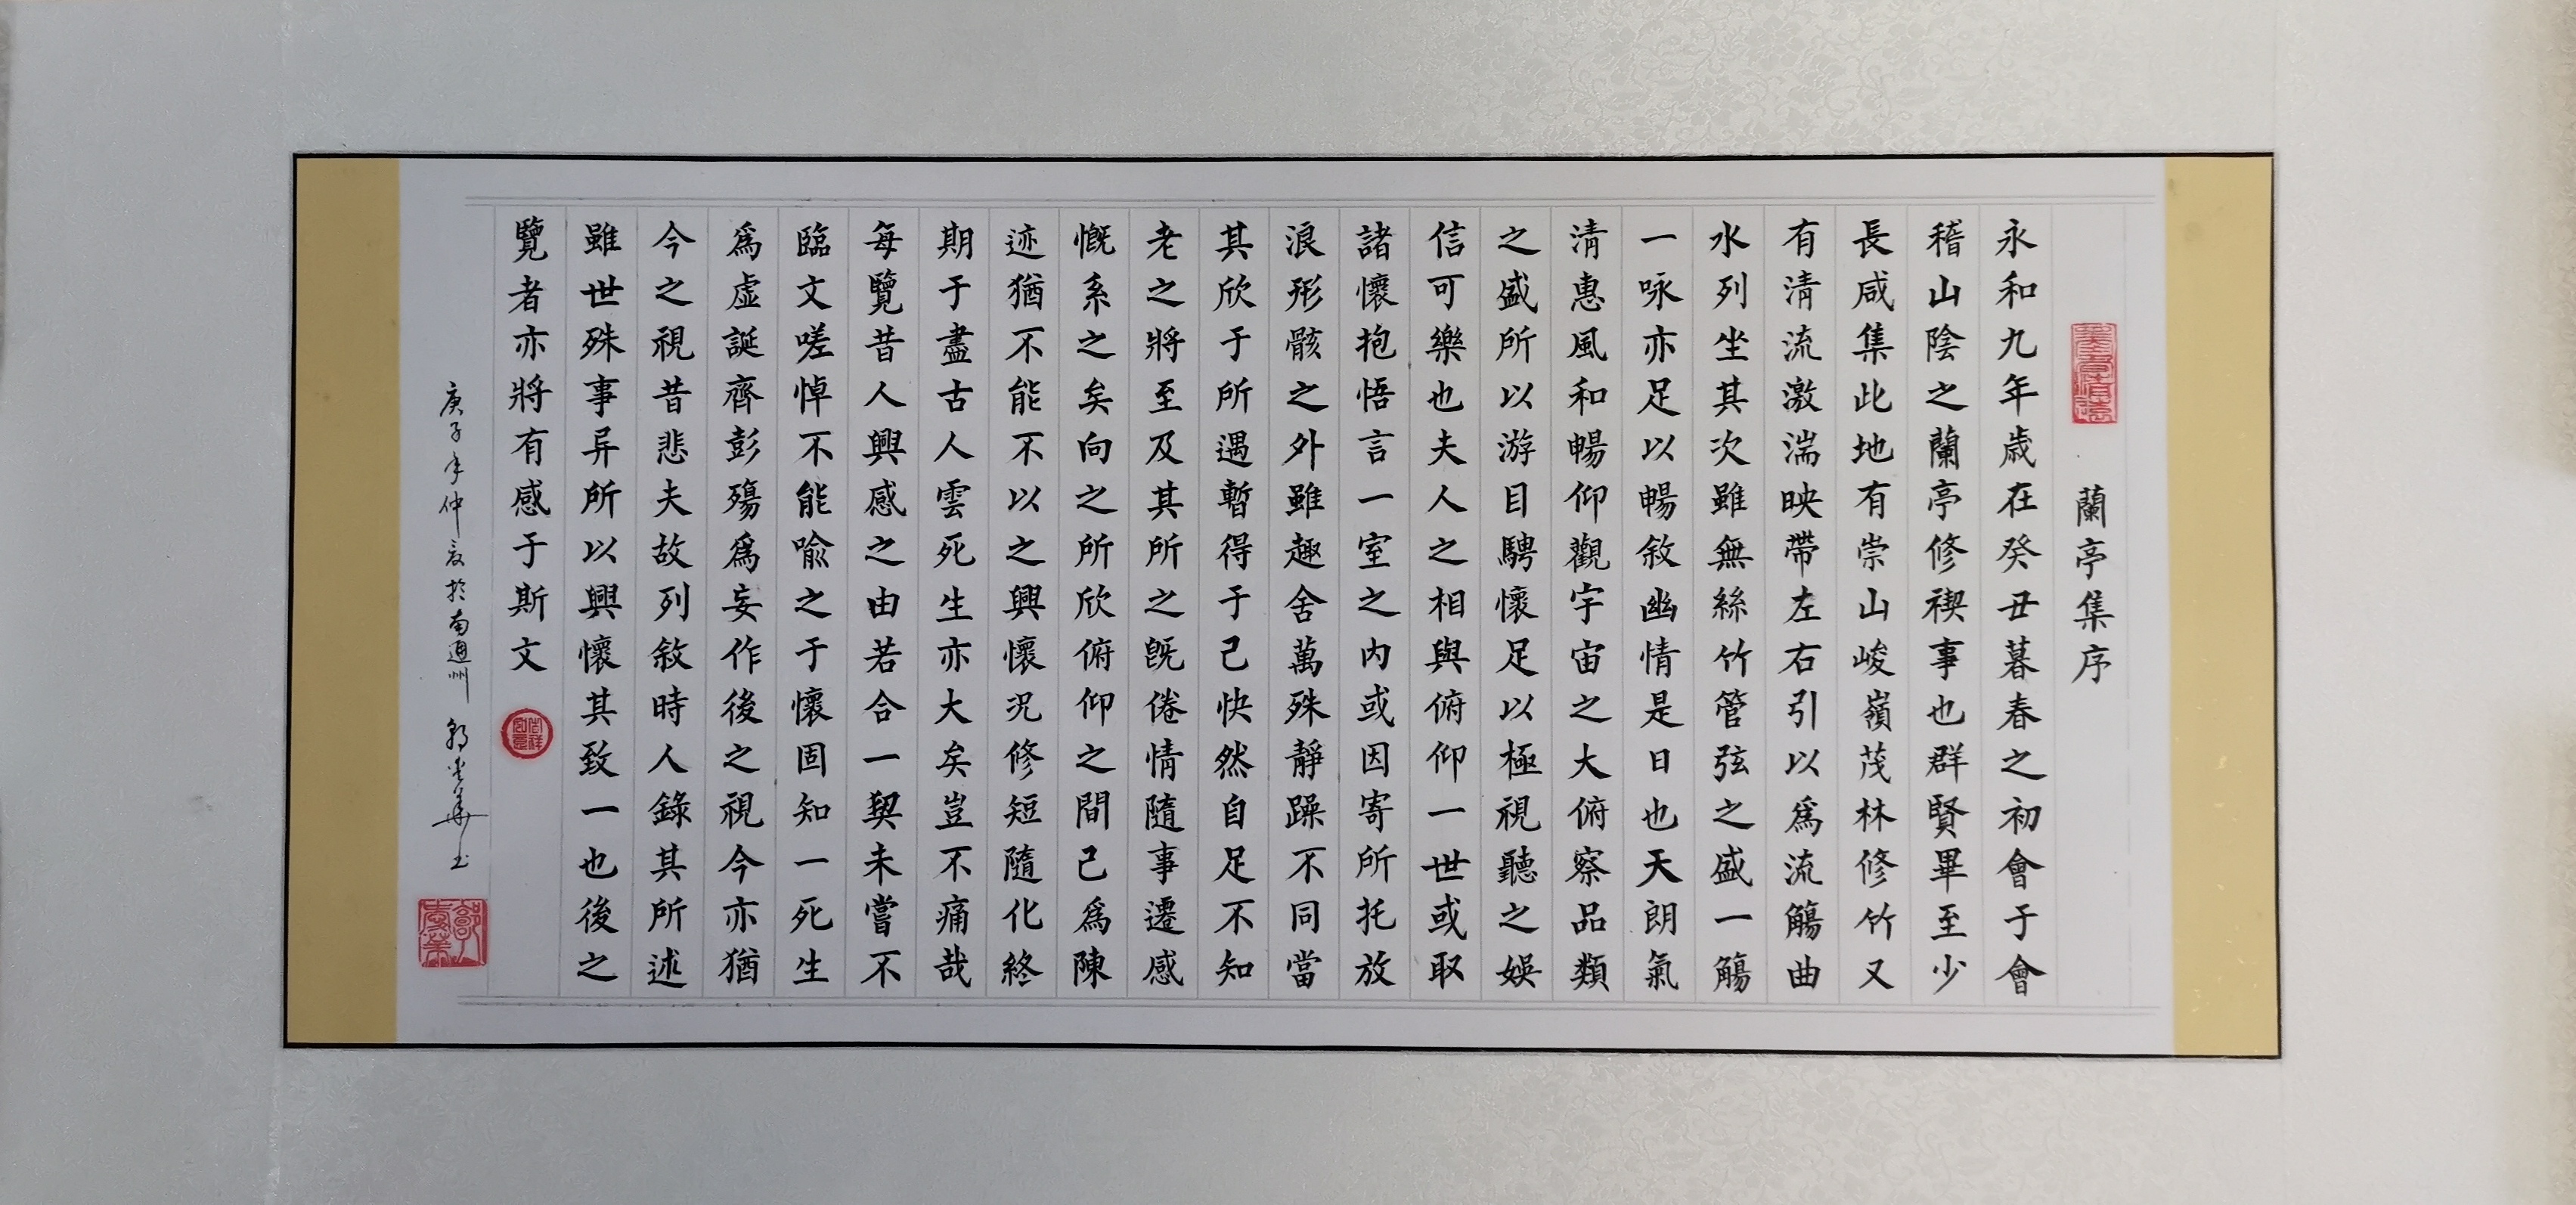 蘭亭集序
永和九年歲在癸丑暮春之初會于會
稽山陰之蘭亭修禊事也群賢畢至少
長咸集此地有崇山峻嶺茂林修竹又
有清流激湍映帶左右引以爲流觴曲
水列坐其次雖無絲竹管弦之盛一觴
一咏亦足以暢敘幽情是日也天朗氣
清惠風和暢仰觀宇宙之大俯察品類
之盛所以游目騁懷足以極視聽之娛
信可樂也夫人之相與俯仰一世或取
諸懷抱悟言一室之內或因寄所托放
浪形骸之外雖趣舍萬殊靜躁不同當
其欣于所遇暫得于己快然自足不知
老之將至及其所之既倦情隨事遷感
慨系之矣向之所欣俯仰之間已爲陳
迹猶不能不以之興懷況修短隨化終
期于盡古人雲死生亦大矣豈不痛哉
每覽昔人興感之由若合一契未嘗不
臨文嗟悼不能喻之于懷固知一死生
爲虛誕齊彭殤爲妄作後之視今亦猶
今之視昔悲夫故列敘時人錄其所述
雖世殊事异所以興懷其致一也後之
覽者亦將有感于斯文
庚子年仲夏於南通州